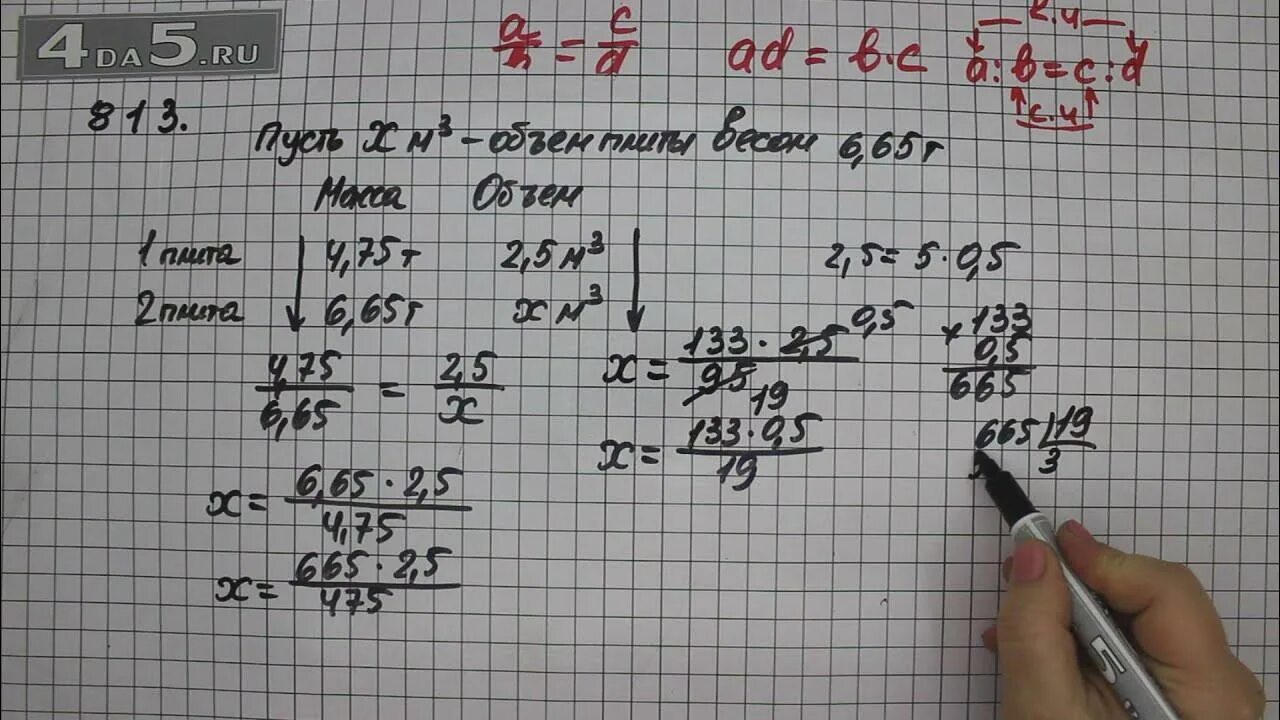 4DA5.RU
a/b = c/d ad = b·c a:b=c:d
к.ч
с.ч
813.
Пусть x м³ - объем плиты весом 6,65 т
Масса Объем
1 плита 4,75 т 2,5 м³
2 плита 6,65 т x м³
4,75/6,65 = 2,5/x
x = 6,65·2,5/4,75
x = 665·2,5/475
x = 133·2,5/95 0,5 19
x = 133·0,5/19
2,5 = 5·0,5
× 133
0,5
665
665 | 19
3
5